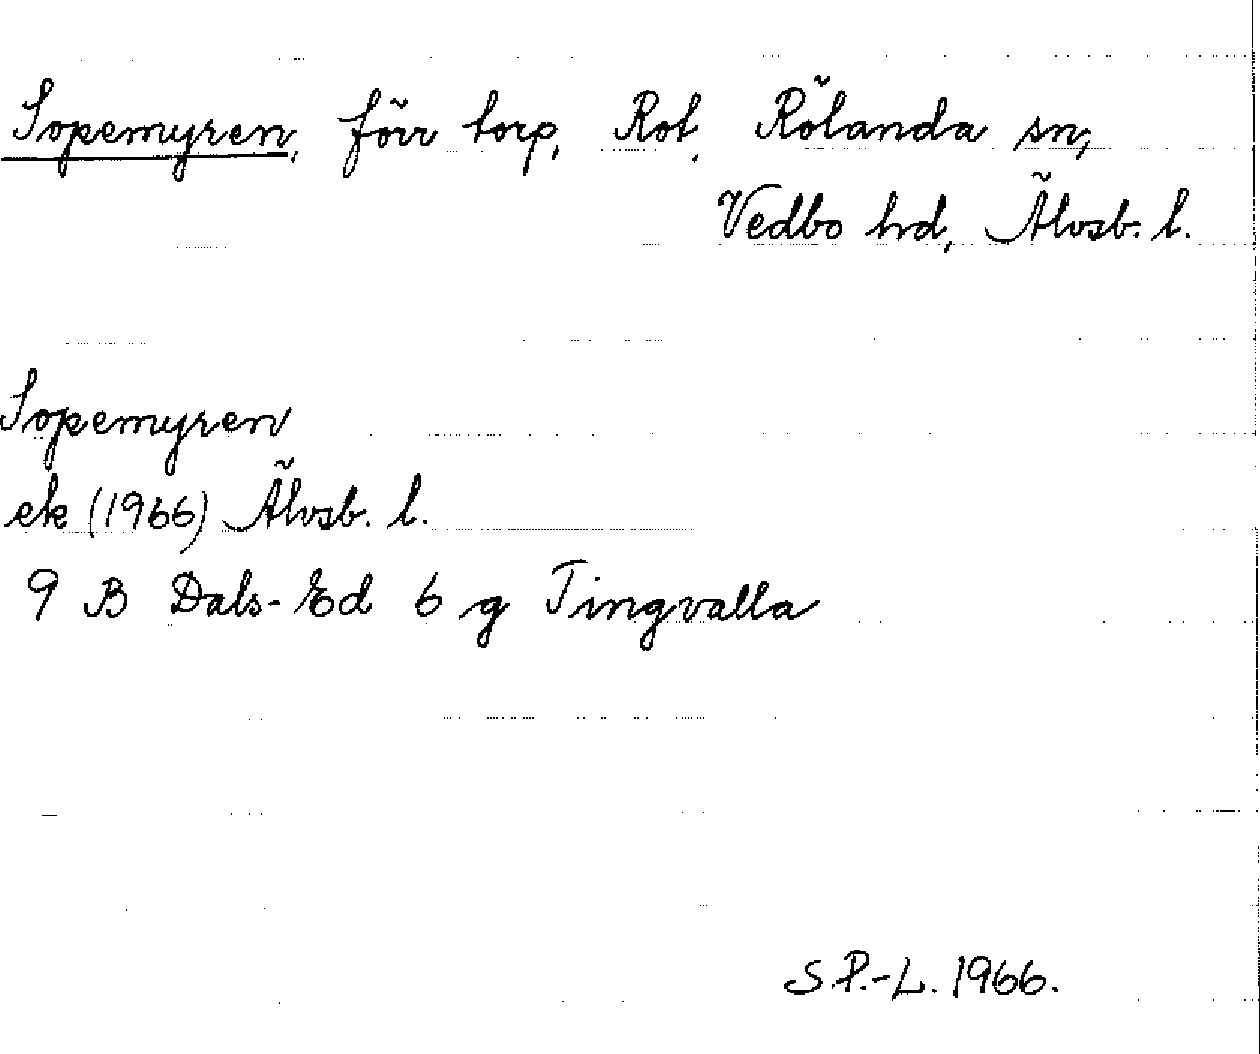 Sopemyren, förr torp, Rot, Rölanda sn,
Vedbo hd, Älvsb. l.
Sopemyren
ek (1966) Älvsb. l.
9 B Dals-Ed 6 g Tingvalla
S P.-L. 1966.